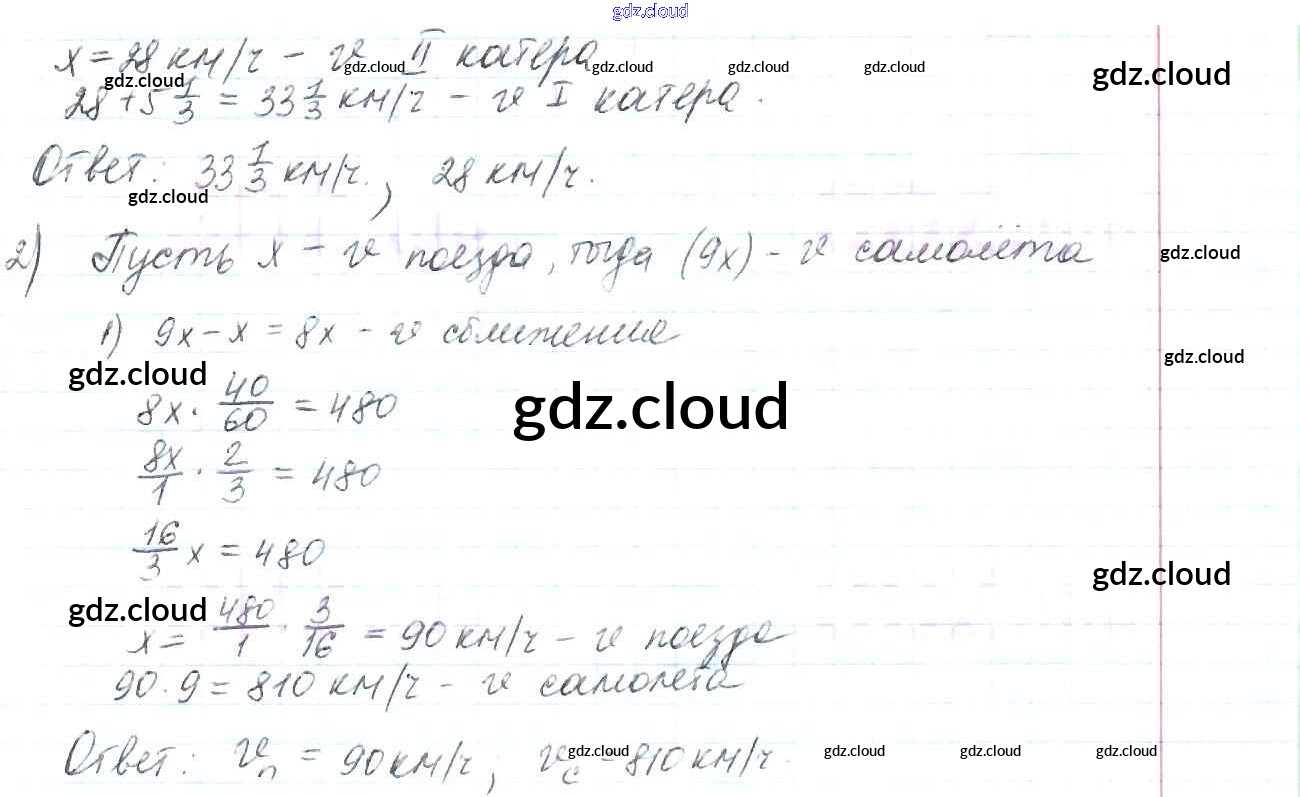 gdz.cloud
x = 28 км/ч - v II катера
gdz.cloud gdz.cloud gdz.cloud gdz.cloud gdz.cloud gdz.cloud
28 + 5 1/3 = 33 1/3 км/ч - v I катера.
Ответ: 33 1/3 км/ч., 28 км/ч.
gdz.cloud
2) Пусть x - v поезда, тогда (9x) - v самолёта
gdz.cloud
1) 9x - x = 8x - v сближения
gdz.cloud
gdz.cloud
8x · 40/60 = 480
gdz.cloud
8x/1 · 2/3 = 480
16/3 x = 480
gdz.cloud
gdz.cloud
x = 480/1 · 3/16 = 90 км/ч - v поезда
90 · 9 = 810 км/ч - v самолета
Ответ: vп = 90 км/ч, vс = 810 км/ч.
gdz.cloud gdz.cloud gdz.cloud gdz.cloud